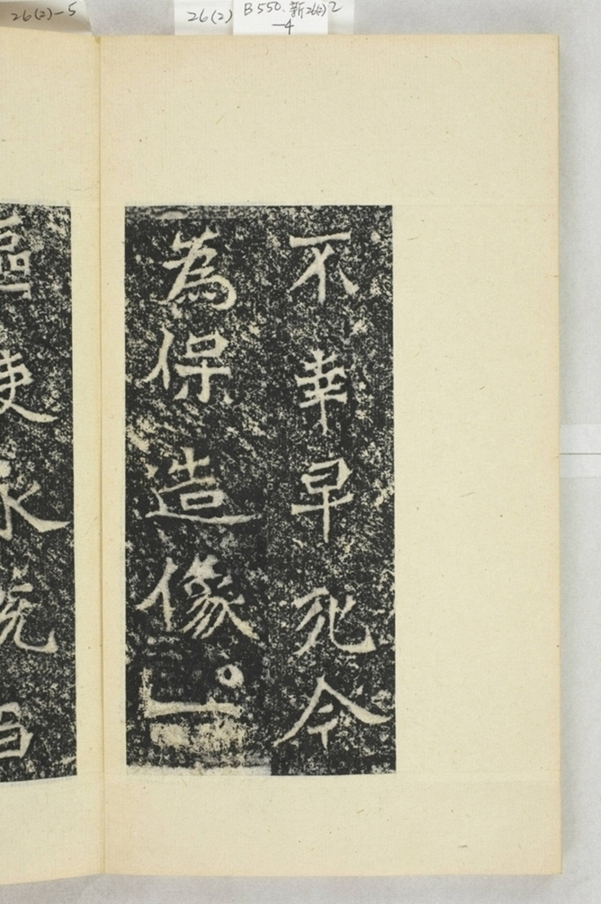 26(2)-5
26(2)
B550.新26(2)2
-4
不幸早死今
為保造像一
使永